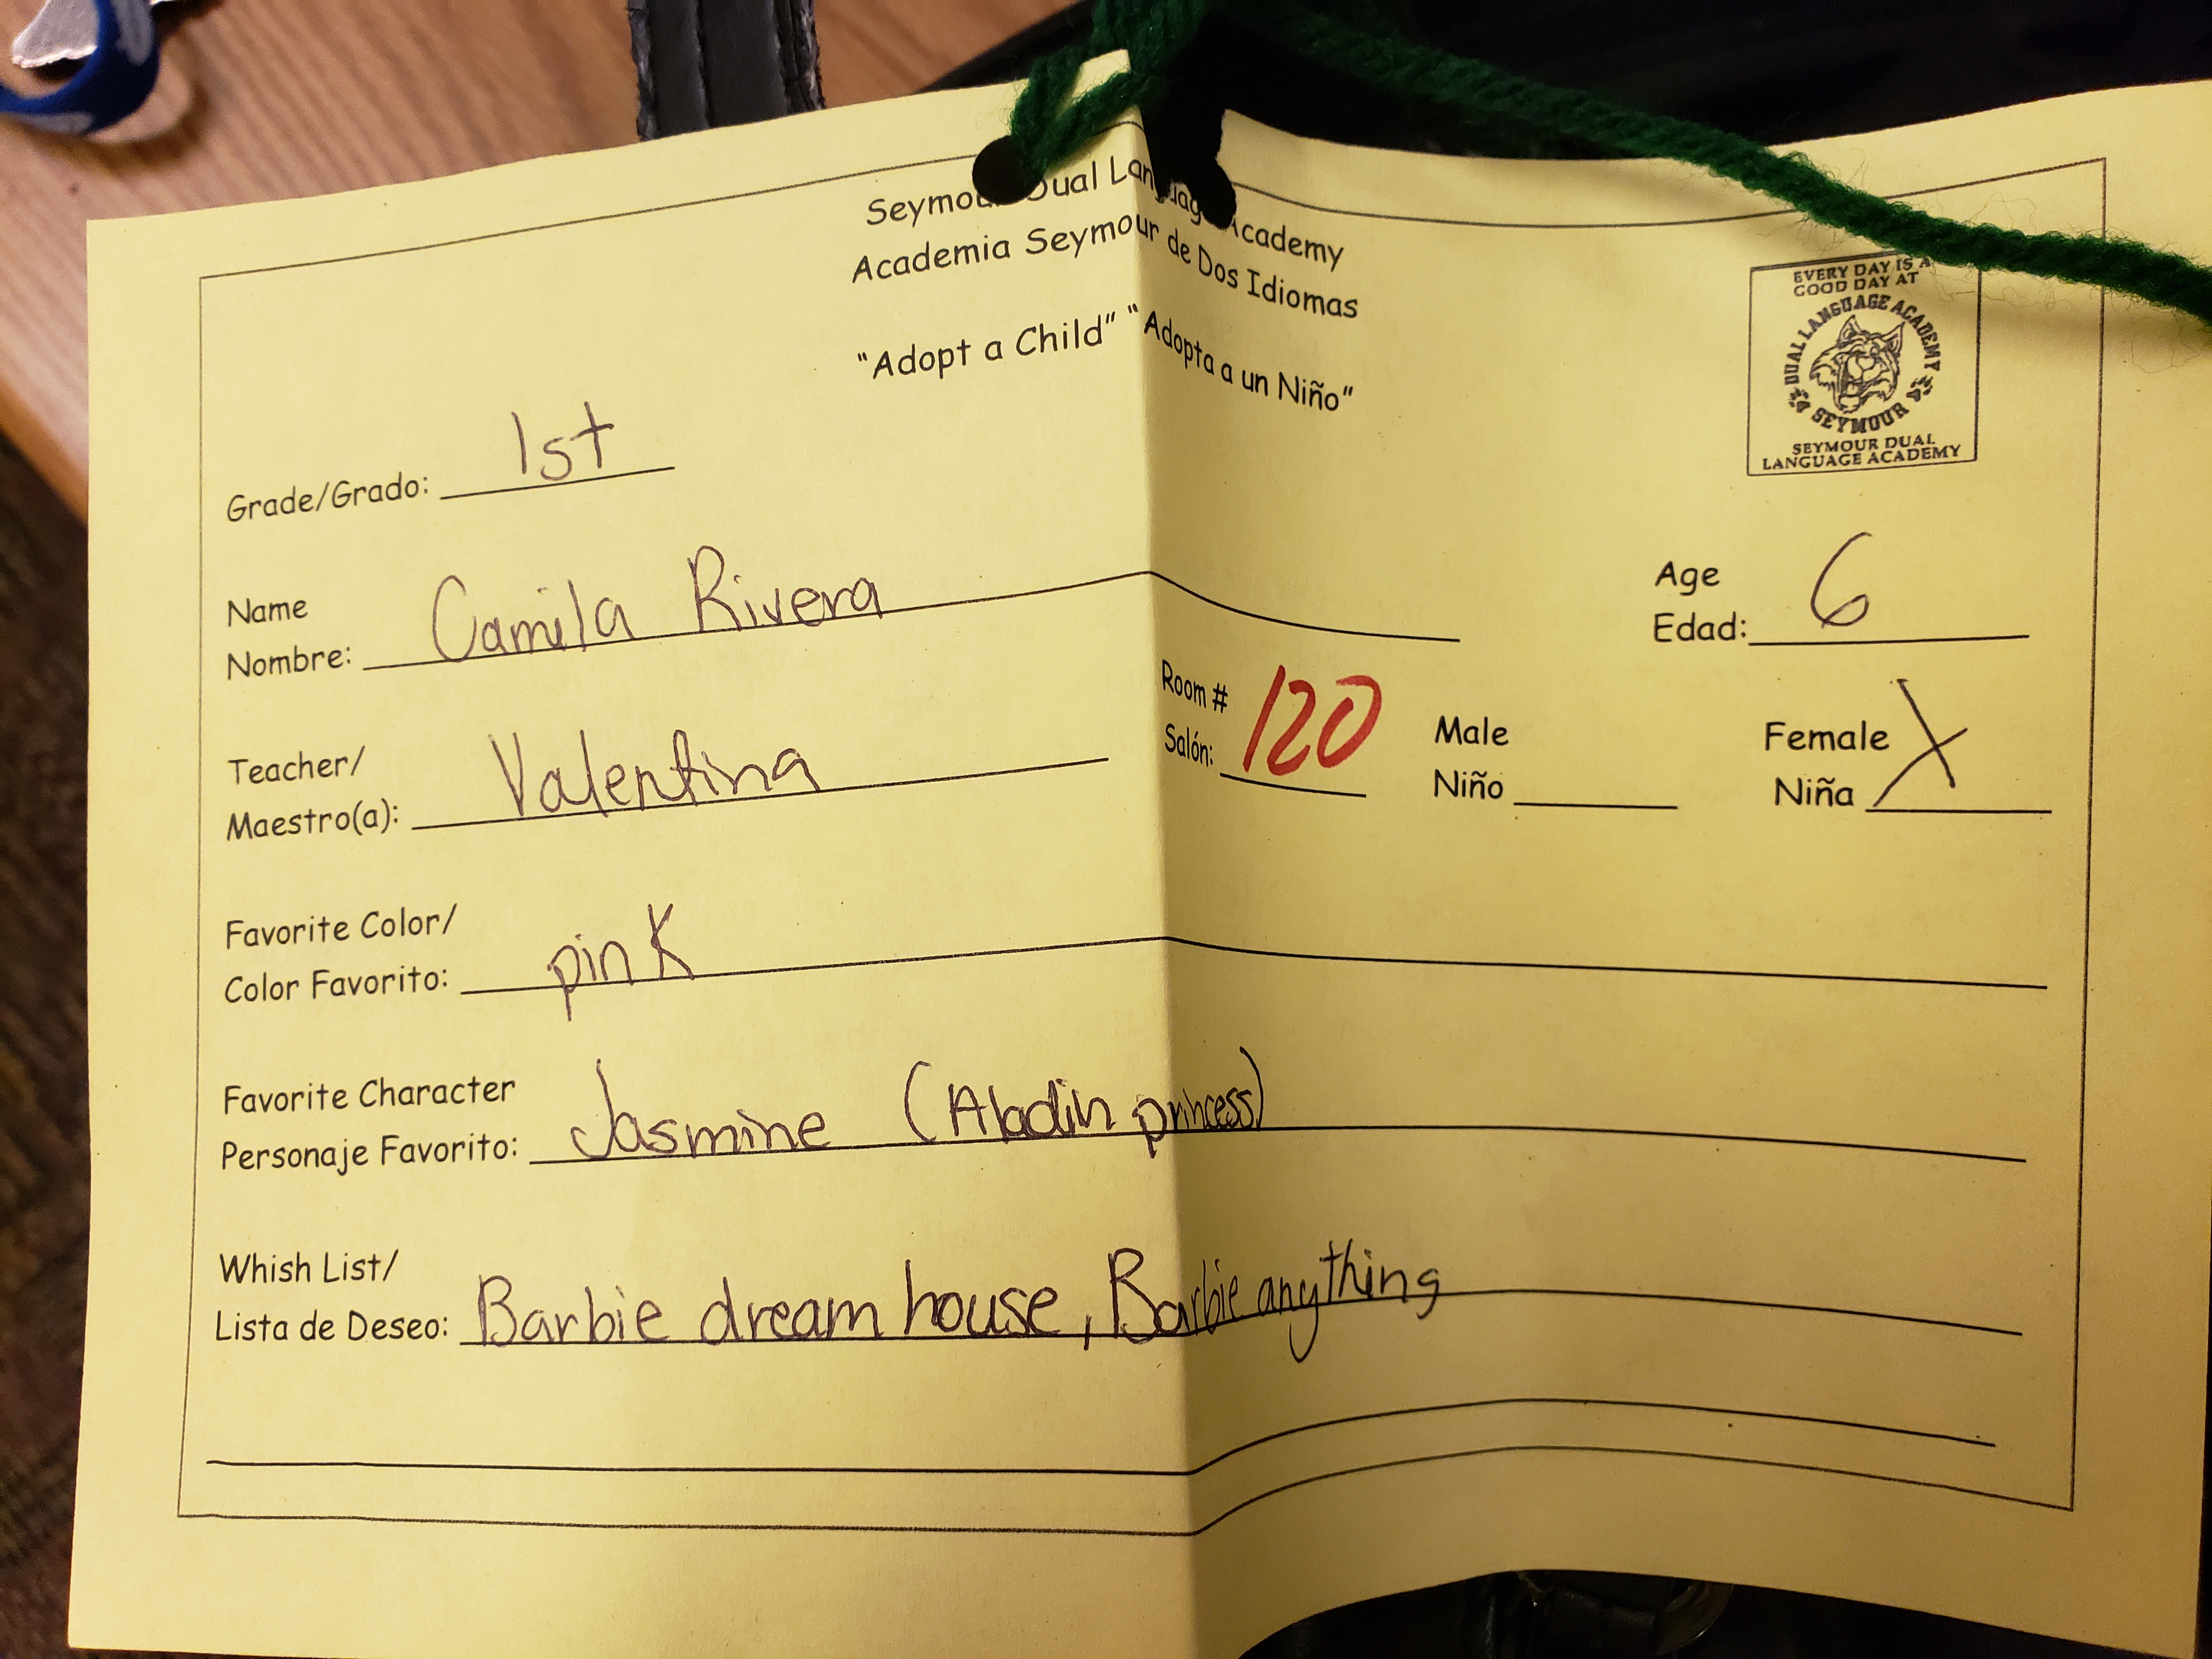 Seymour Dual Language Academy
Academia Seymour de Dos Idiomas
"Adopt a Child" "Adopta a un Niño"
EVERY DAY IS A
GOOD DAY AT
DUAL LANGUAGE ACADEMY
SEYMOUR
SEYMOUR DUAL
LANGUAGE ACADEMY
Grade/Grado: 1st
Name
Nombre: Camila Rivera
Age
Edad: 6
Teacher/
Maestro(a): Valentina
Room #
Salón: 120
Male
Niño
Female
Niña X
Favorite Color/
Color Favorito: pink
Favorite Character
Personaje Favorito: Jasmine (Aladin princess)
Whish List/
Lista de Deseo: Barbie dream house, Barbie anything